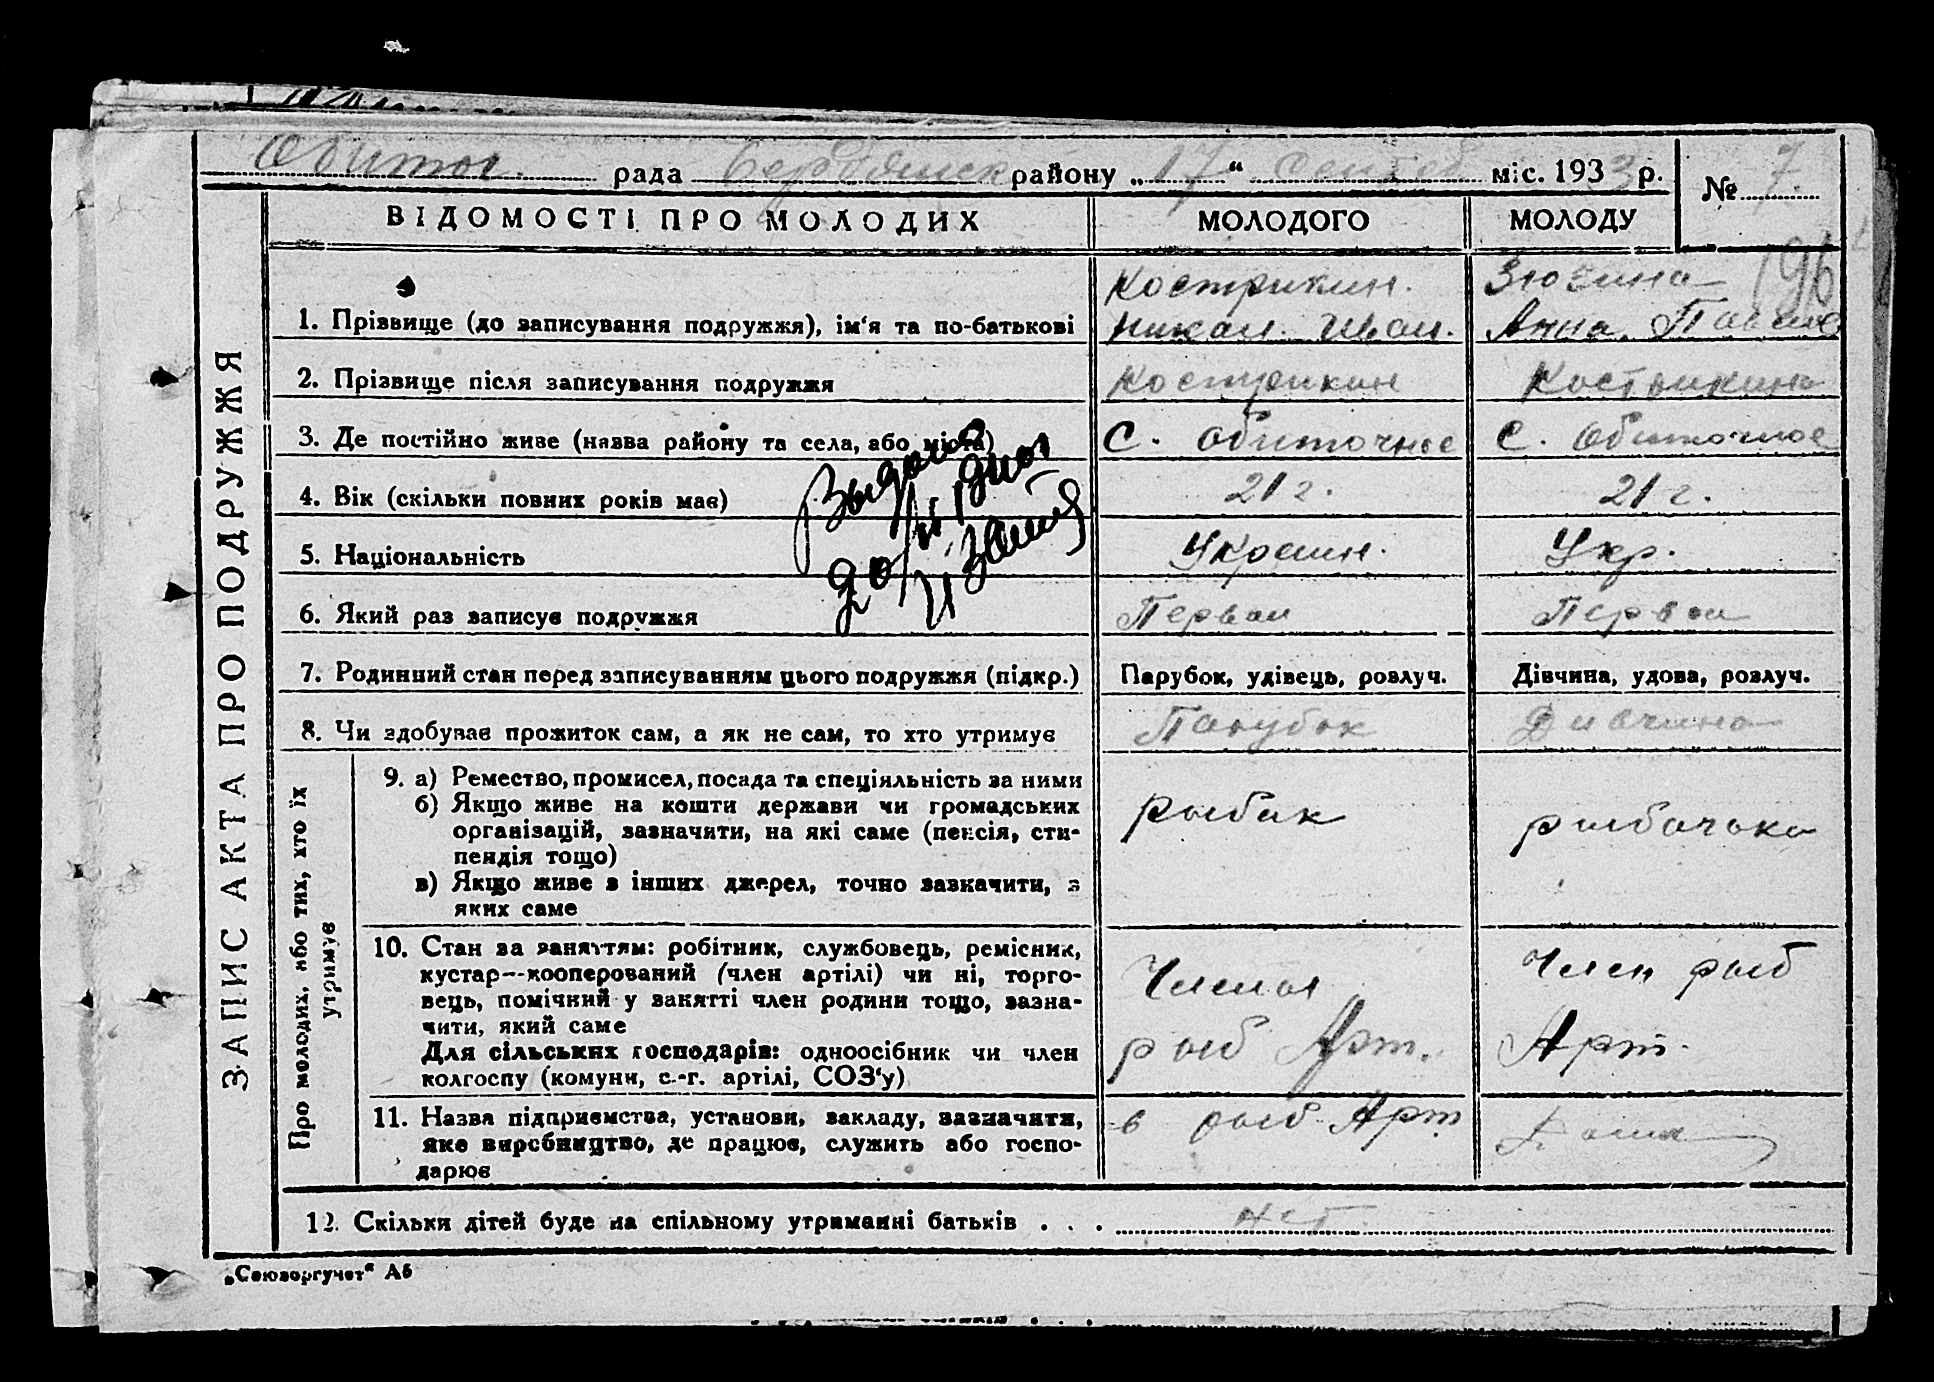 Обиточ. рада Бердянск району „17“ Сентяб міс. 1933 р. № 7
ВІДОМОСТІ ПРО МОЛОДИХ МОЛОДОГО МОЛОДУ
196
ЗАПИС АКТА ПРО ПОДРУЖЖЯ
Кострикин. Зюзина
1. Прізвище (до записування подружжя), ім‘я та по-батькові Никол. Иван. Анна Павл
2. Прізвище після записування подружжя Кострикин Кострикина
3. Де постійно живе (назва району та села, або міста) с. Обиточное с. Обиточное
4. Вік (скільки повних років має) 21 г. 21 г.
5. Національність Украин. Укр.
6. Який раз записує подружжя Первый Первый
7. Родинний стан перед записуванням цього подружжя (підкр.) Парубок, удівець, розлуч. Дівчина, удова, розлуч.
8. Чи здобував прожиток сам, а як не сам, то хто утримує Парубок Дивчина
Про молодих, або тих, хто їх утримує
9. а) Ремество, промисел, посада та спеціяльність за ними
б) Якщо живе на кошти держави чи громадських рыбак рыбачька
організацій, зазначити, на які саме (пенсія, сти-
пендія тощо)
в) Якщо живе з інших джерел, точно зазначити, з
яких саме
10. Стан за заняттям: робітник, службовець, ремісник, Член рыб
кустар—кооперований (член артілі) чи ні, торго-
вець, помічний у занятті член родини тощо, зазна-
чити, який саме
Для сільських господарів: одноосібник чи член рыб Арт. Арт.
колгоспу (комуни, с.-г. артілі, СОЗ‘у)
11. Назва підприємства, установи, закладу, зазначити, в рыб. Арт
яке виробництво, де працює, служить або госпо-
дарює
12. Скільки дітей буде на спільному утриманні батьків . . . нет
„Союзоргучет“ А5